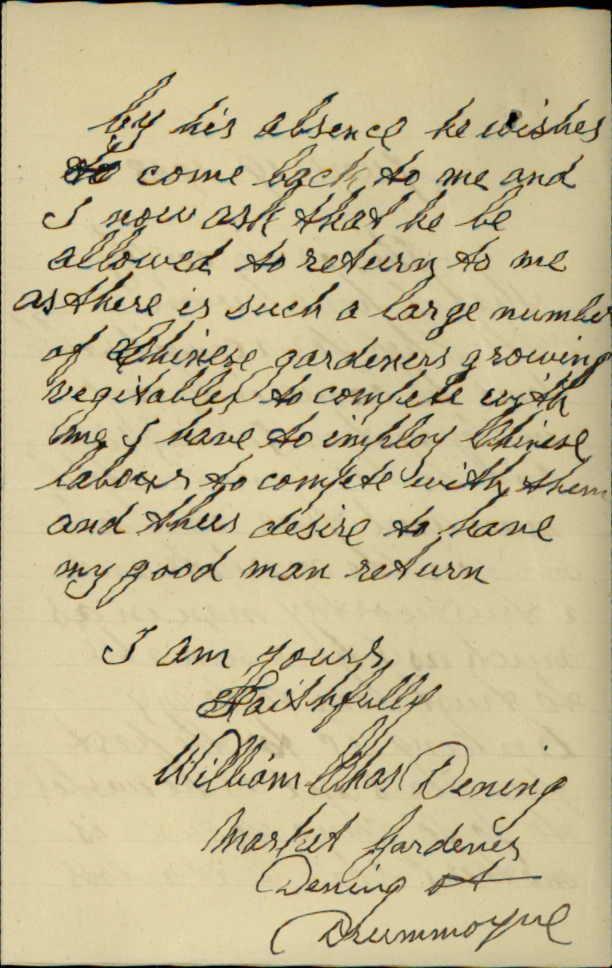 by his absence he wishes
to come back to me and
I now ask that he be
allowed to return to me
as there is such a large number
of Chinese gardeners growing
vegitables to compete with
me I have to imploy Chinese
labour to compete with them
and thus desire to have
my good man return
I am yours
Faithfully
William Chas Dening
Market Gardener
Dening st
Drummoyne